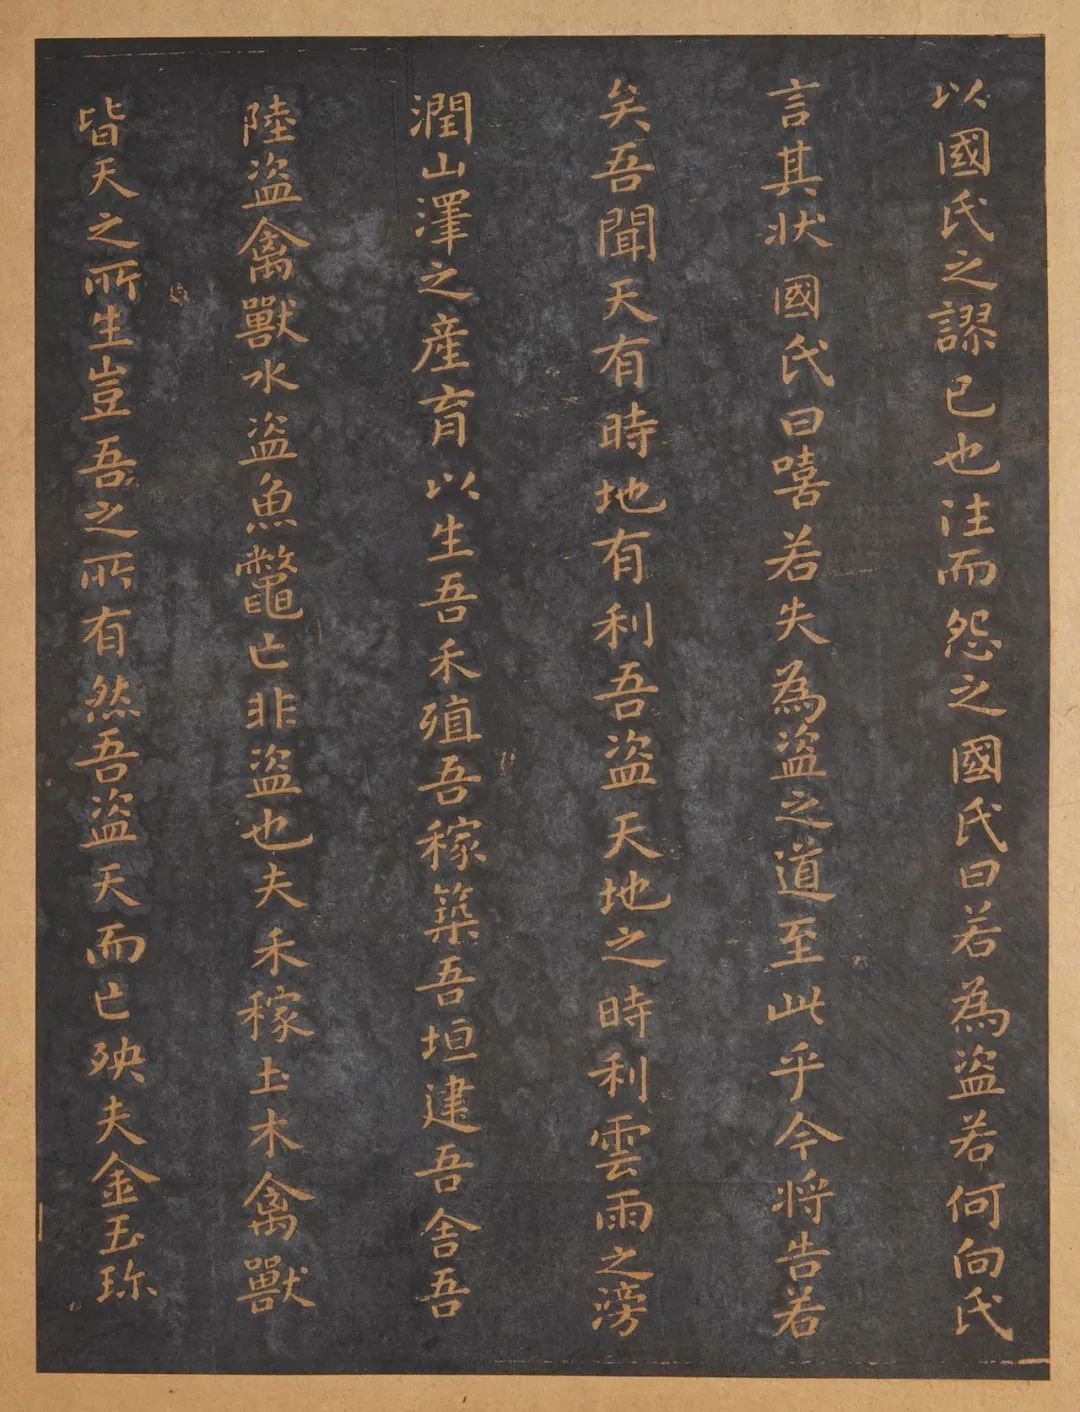 以國氏之謬已也往而怨之國氏曰若為盜若何向氏
言其狀國氏曰嘻若失為盜之道至此乎今將告若
矣吾聞天有時地有利吾盜天地之時利雲雨之滂
潤山澤之產育以生吾禾殖吾稼築吾垣建吾舍吾
陸盜禽獸水盜魚鼈亡非盜也夫禾稼土木禽獸
皆天之所生豈吾之所有然吾盜天而亡殃夫金玉珎